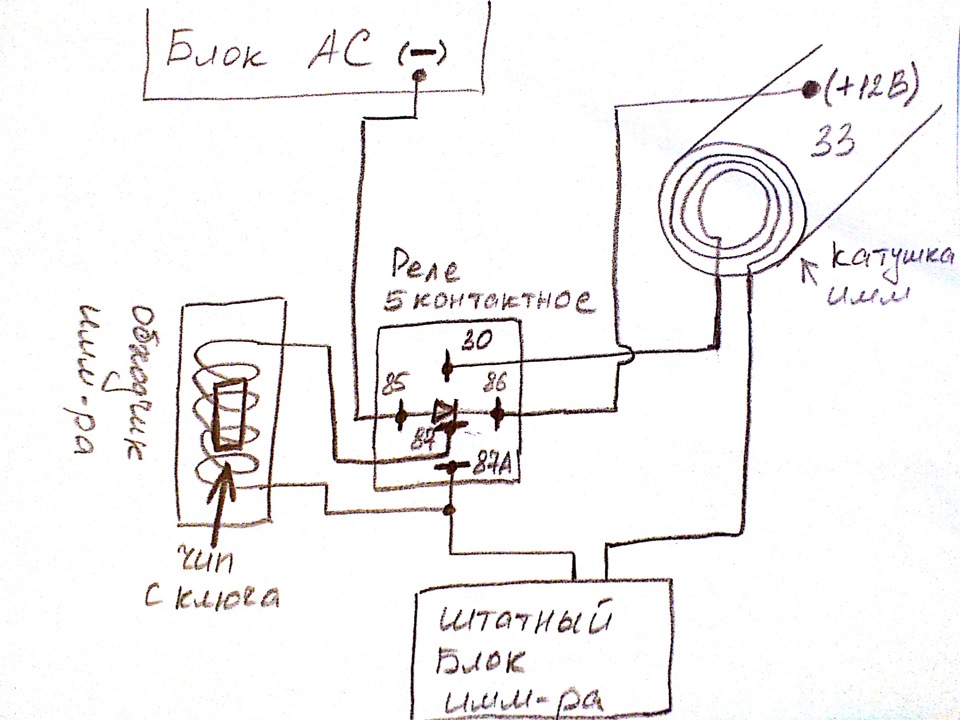 Блок АС (-)
(+12В)
33
катушка
имм
Реле
5 контактное
30
85
86
87
87А
Обходчик
имм-ра
чип
с ключа
штатный
Блок
имм-ра